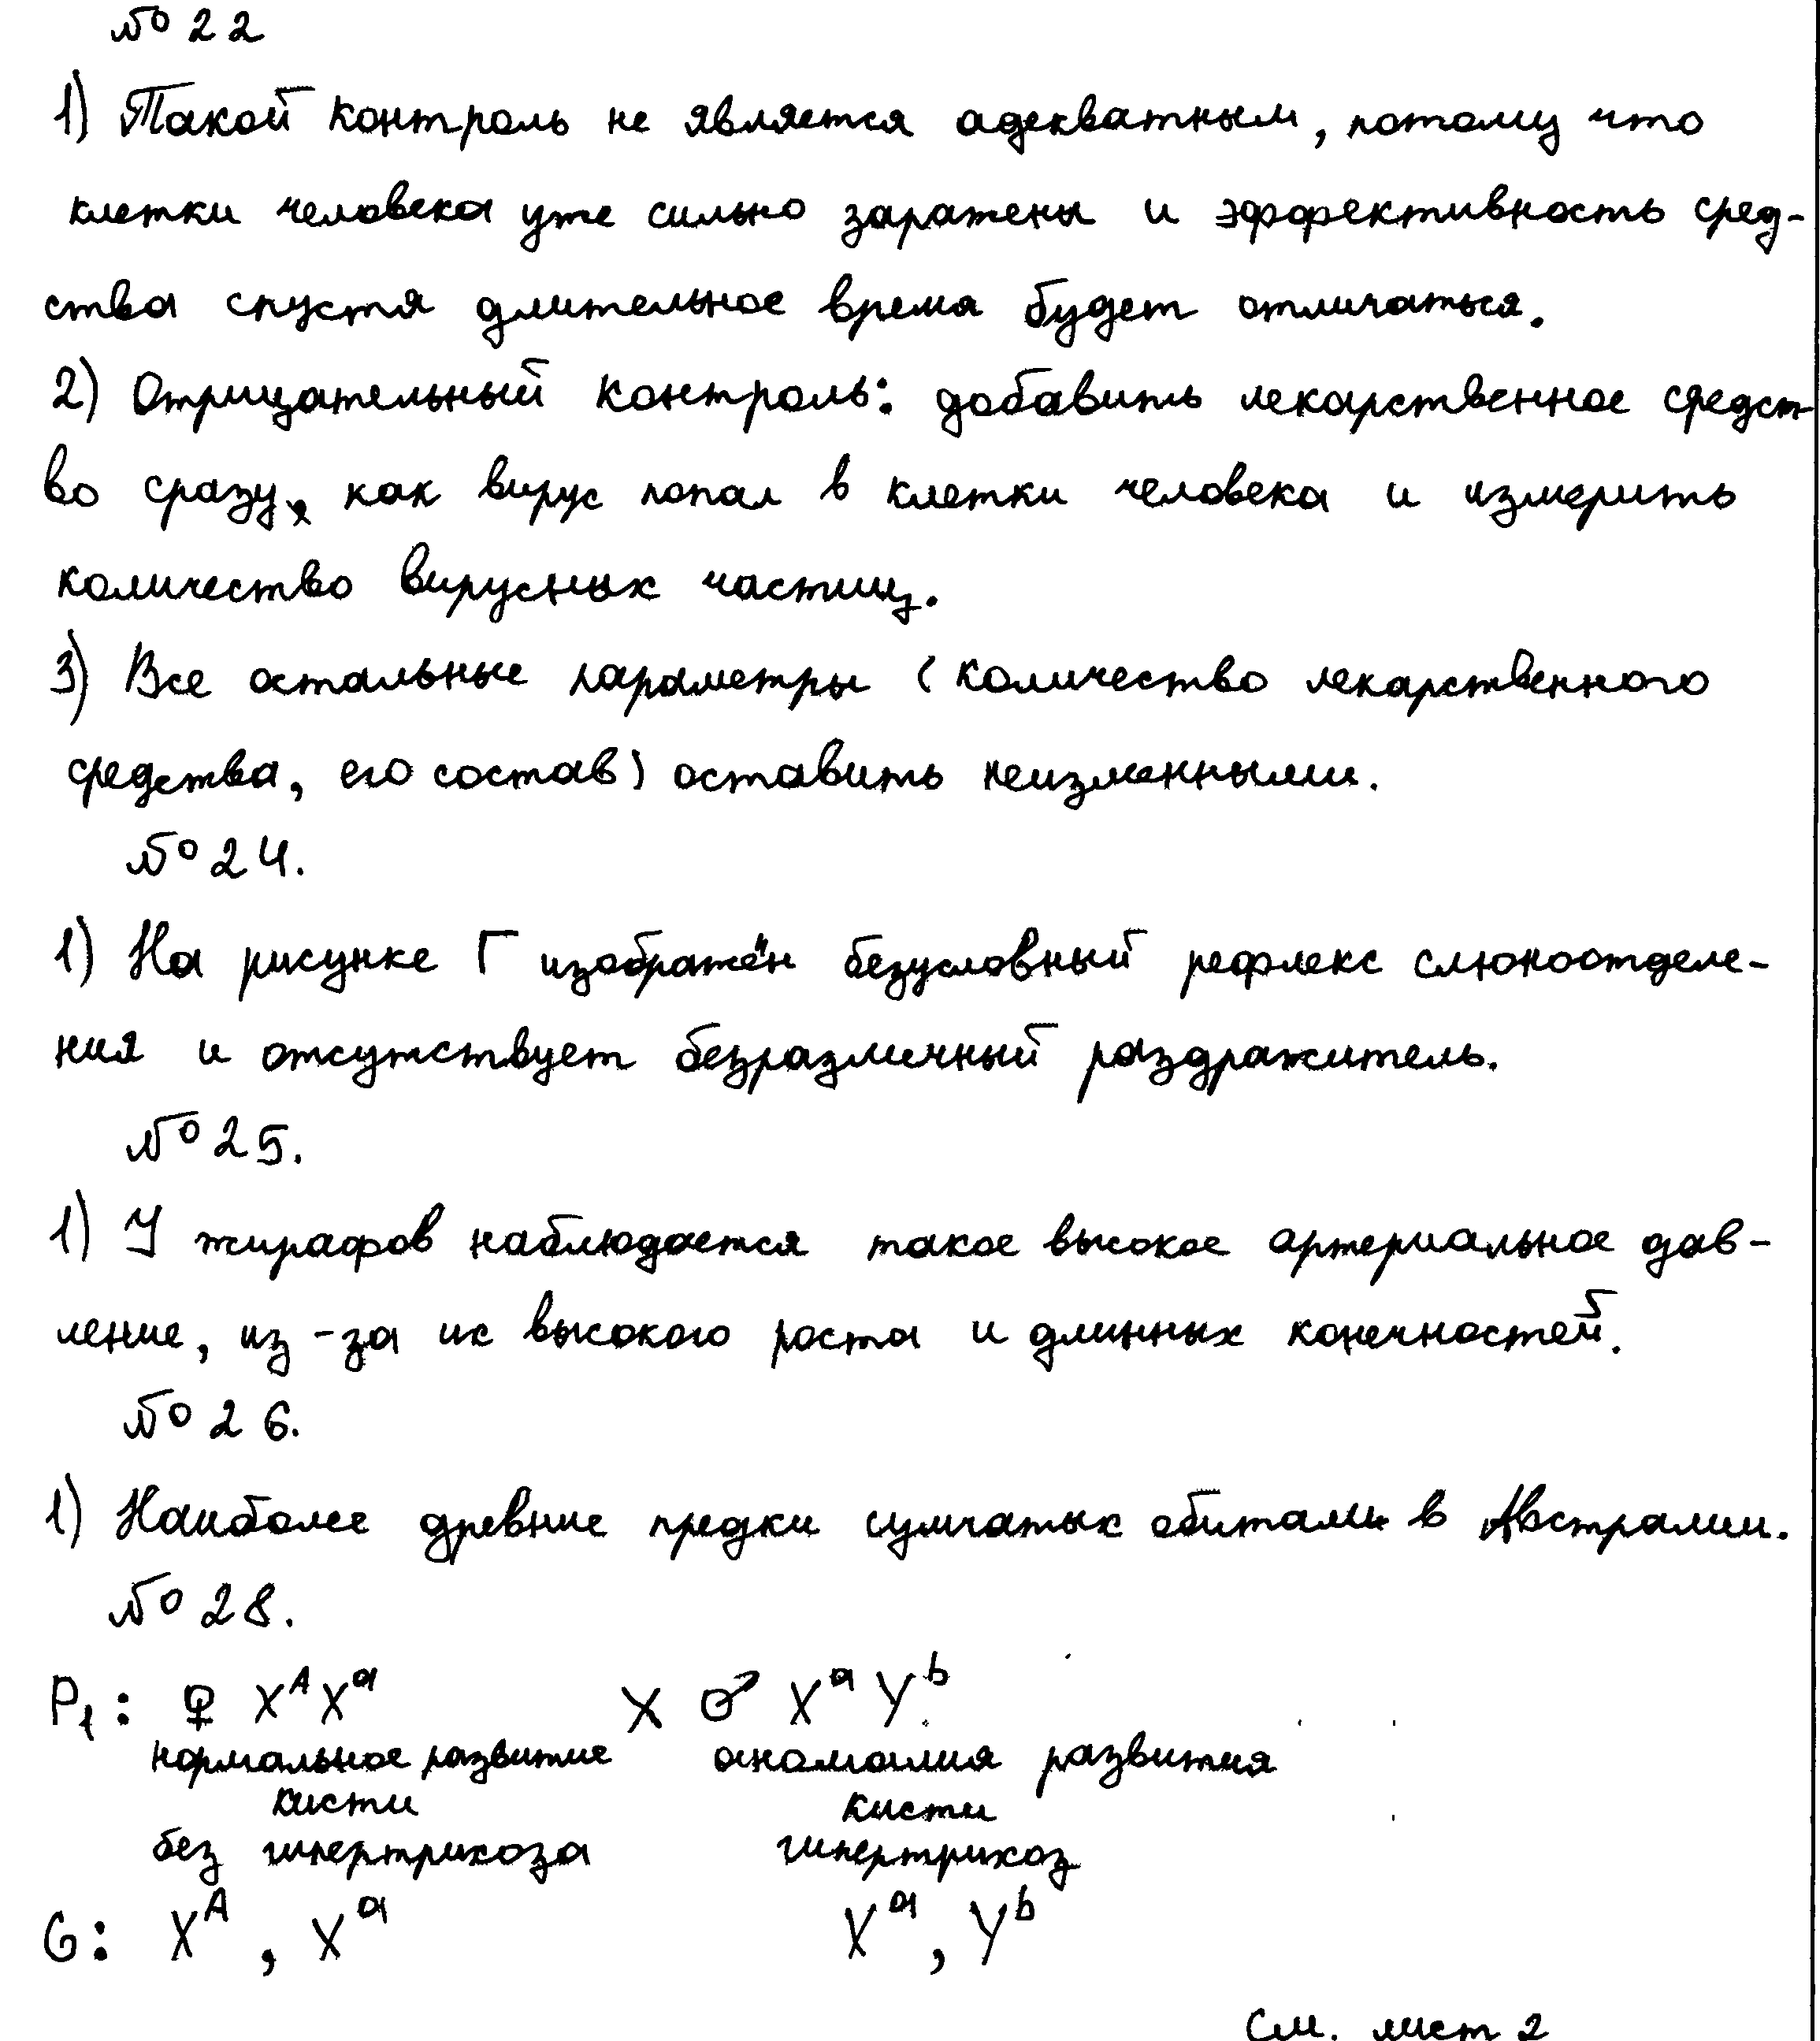 № 22
1) Такой контроль не является адекватным, потому что
клетки человека уже сильно заражены и эффективность сред-
ства спустя длительное время будет отличаться.
2) Отрицательный контроль: добавить лекарственное средст-
во сразу, как вирус попал в клетки человека и измерить
количество вирусных частиц.
3) Все остальные параметры (количество лекарственного
средства, его состав) оставить неизменными.
№ 24.
1) На рисунке Г изображён безусловный рефлекс слюноотделе-
ния и отсутствует безразличный раздражитель.
№ 25.
1) У жирафов наблюдается такое высокое артериальное дав-
ление, из-за их высокого роста и длинных конечностей.
№ 26.
1) Наиболее древние предки сумчатых обитали в Австралии.
№ 28.
P₁: ♀ XᴬXᵃ X ♂ XᵃYᵇ
нормальное развитие аномалия развития
кисти кисти
без гипертрихоза гипертрихоз
G: Xᴬ, Xᵃ Xᵃ, Yᵇ
См. лист 2